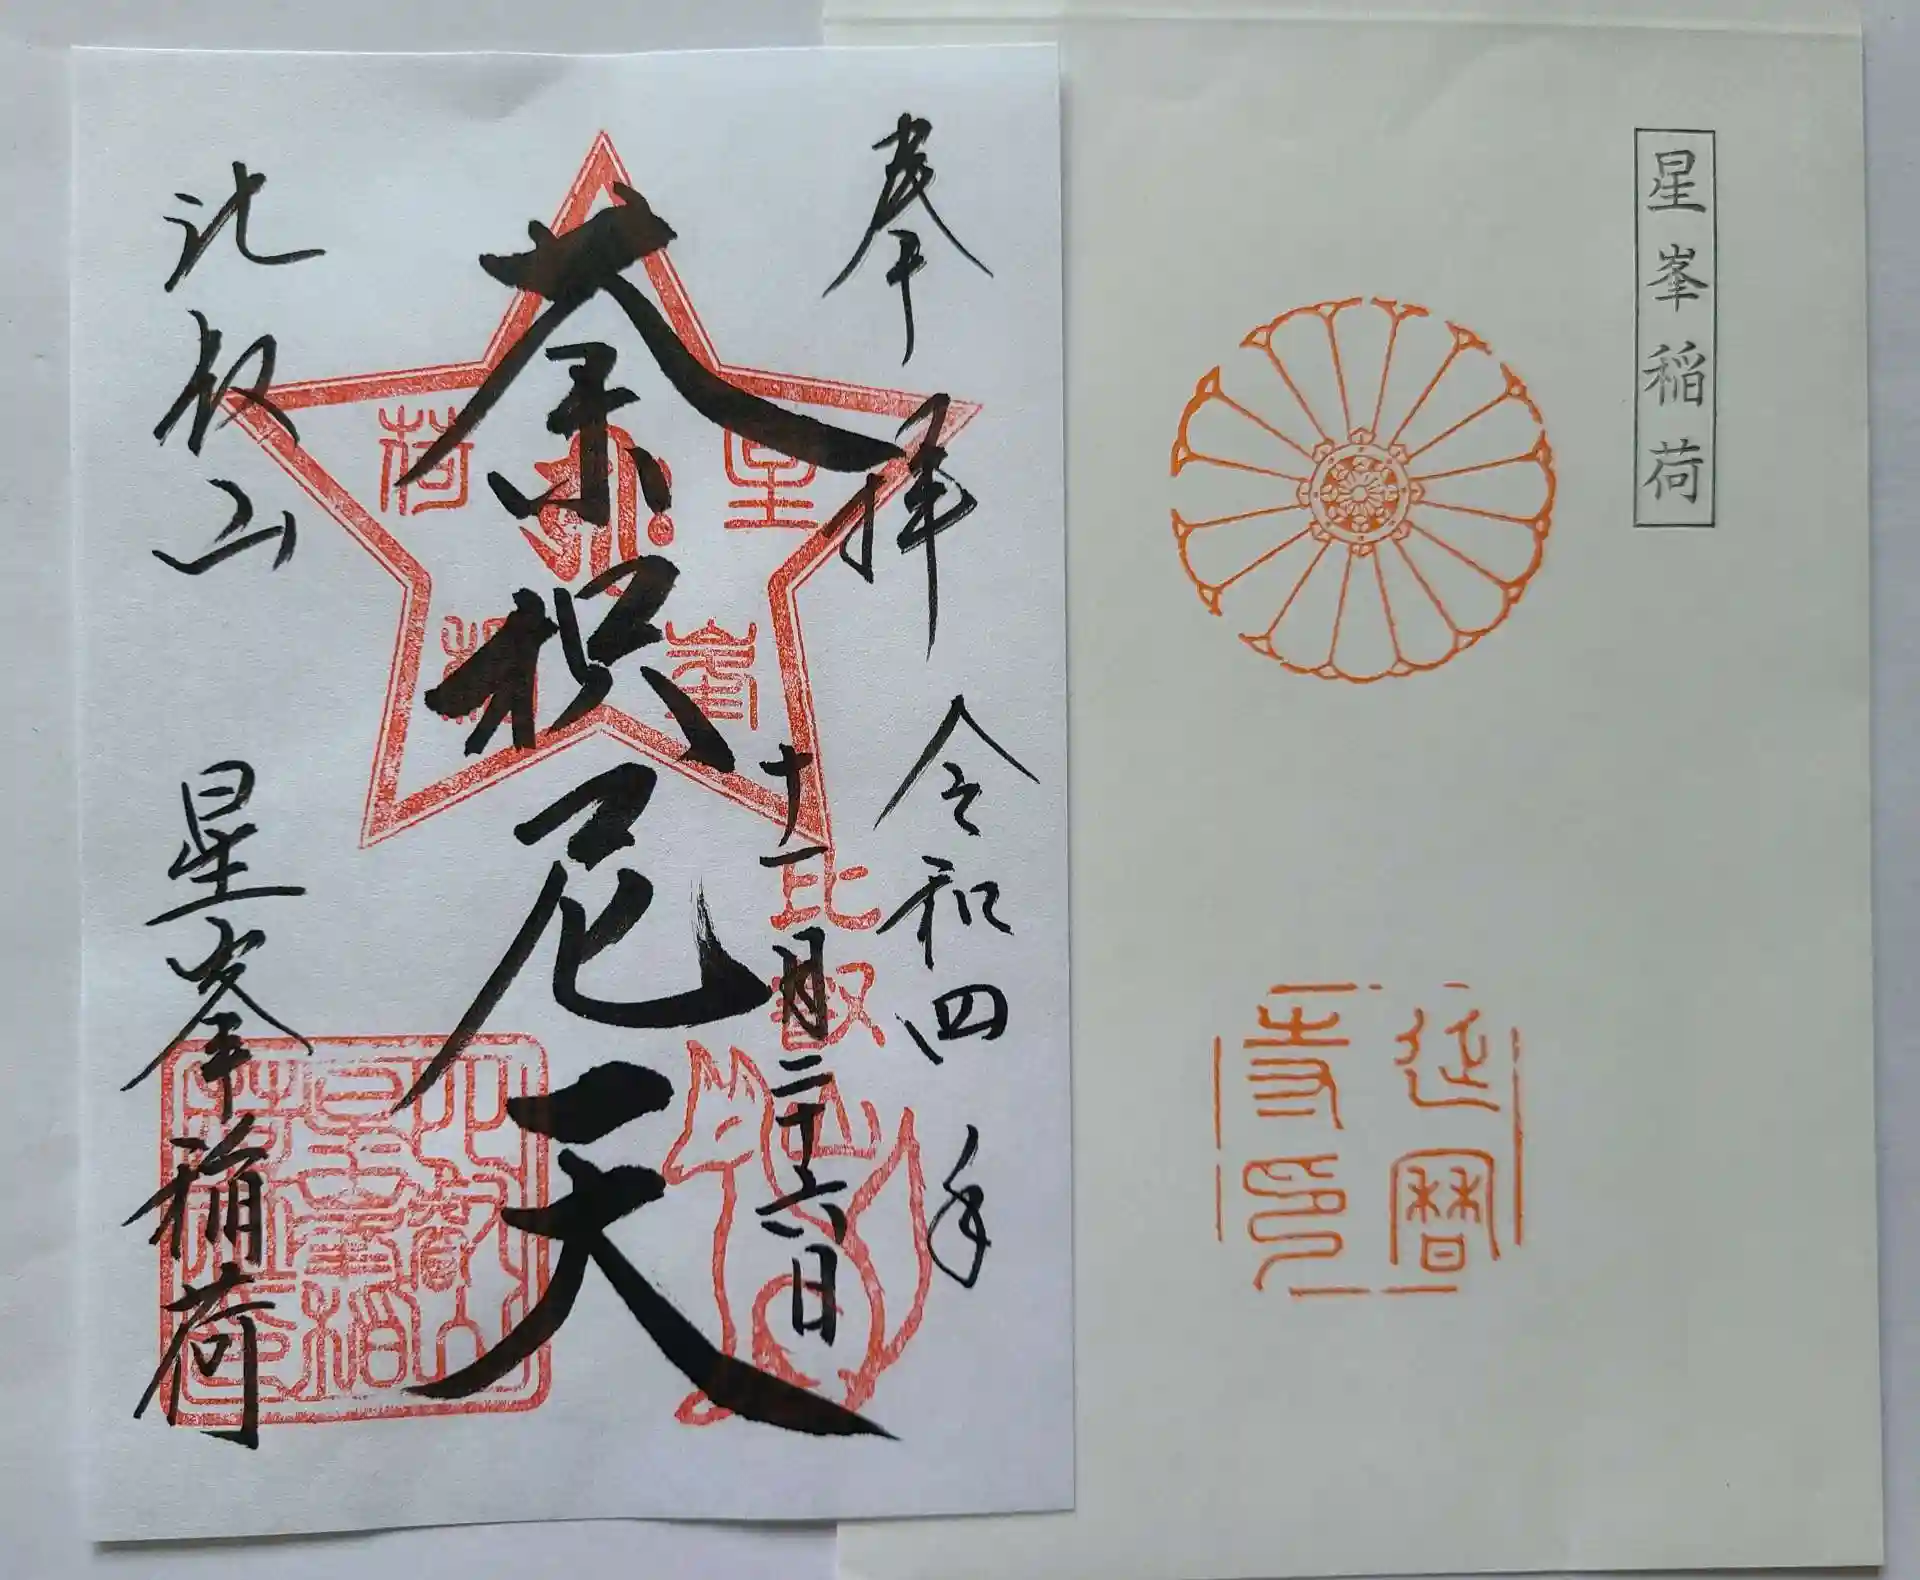 星峯稲荷
延暦
寺印
奉拝
令和四年
十一月二十六日
比叡山
荼枳尼天
星峯稲荷
比叡山
星峯稲荷
比叡山
星峯稲
荷